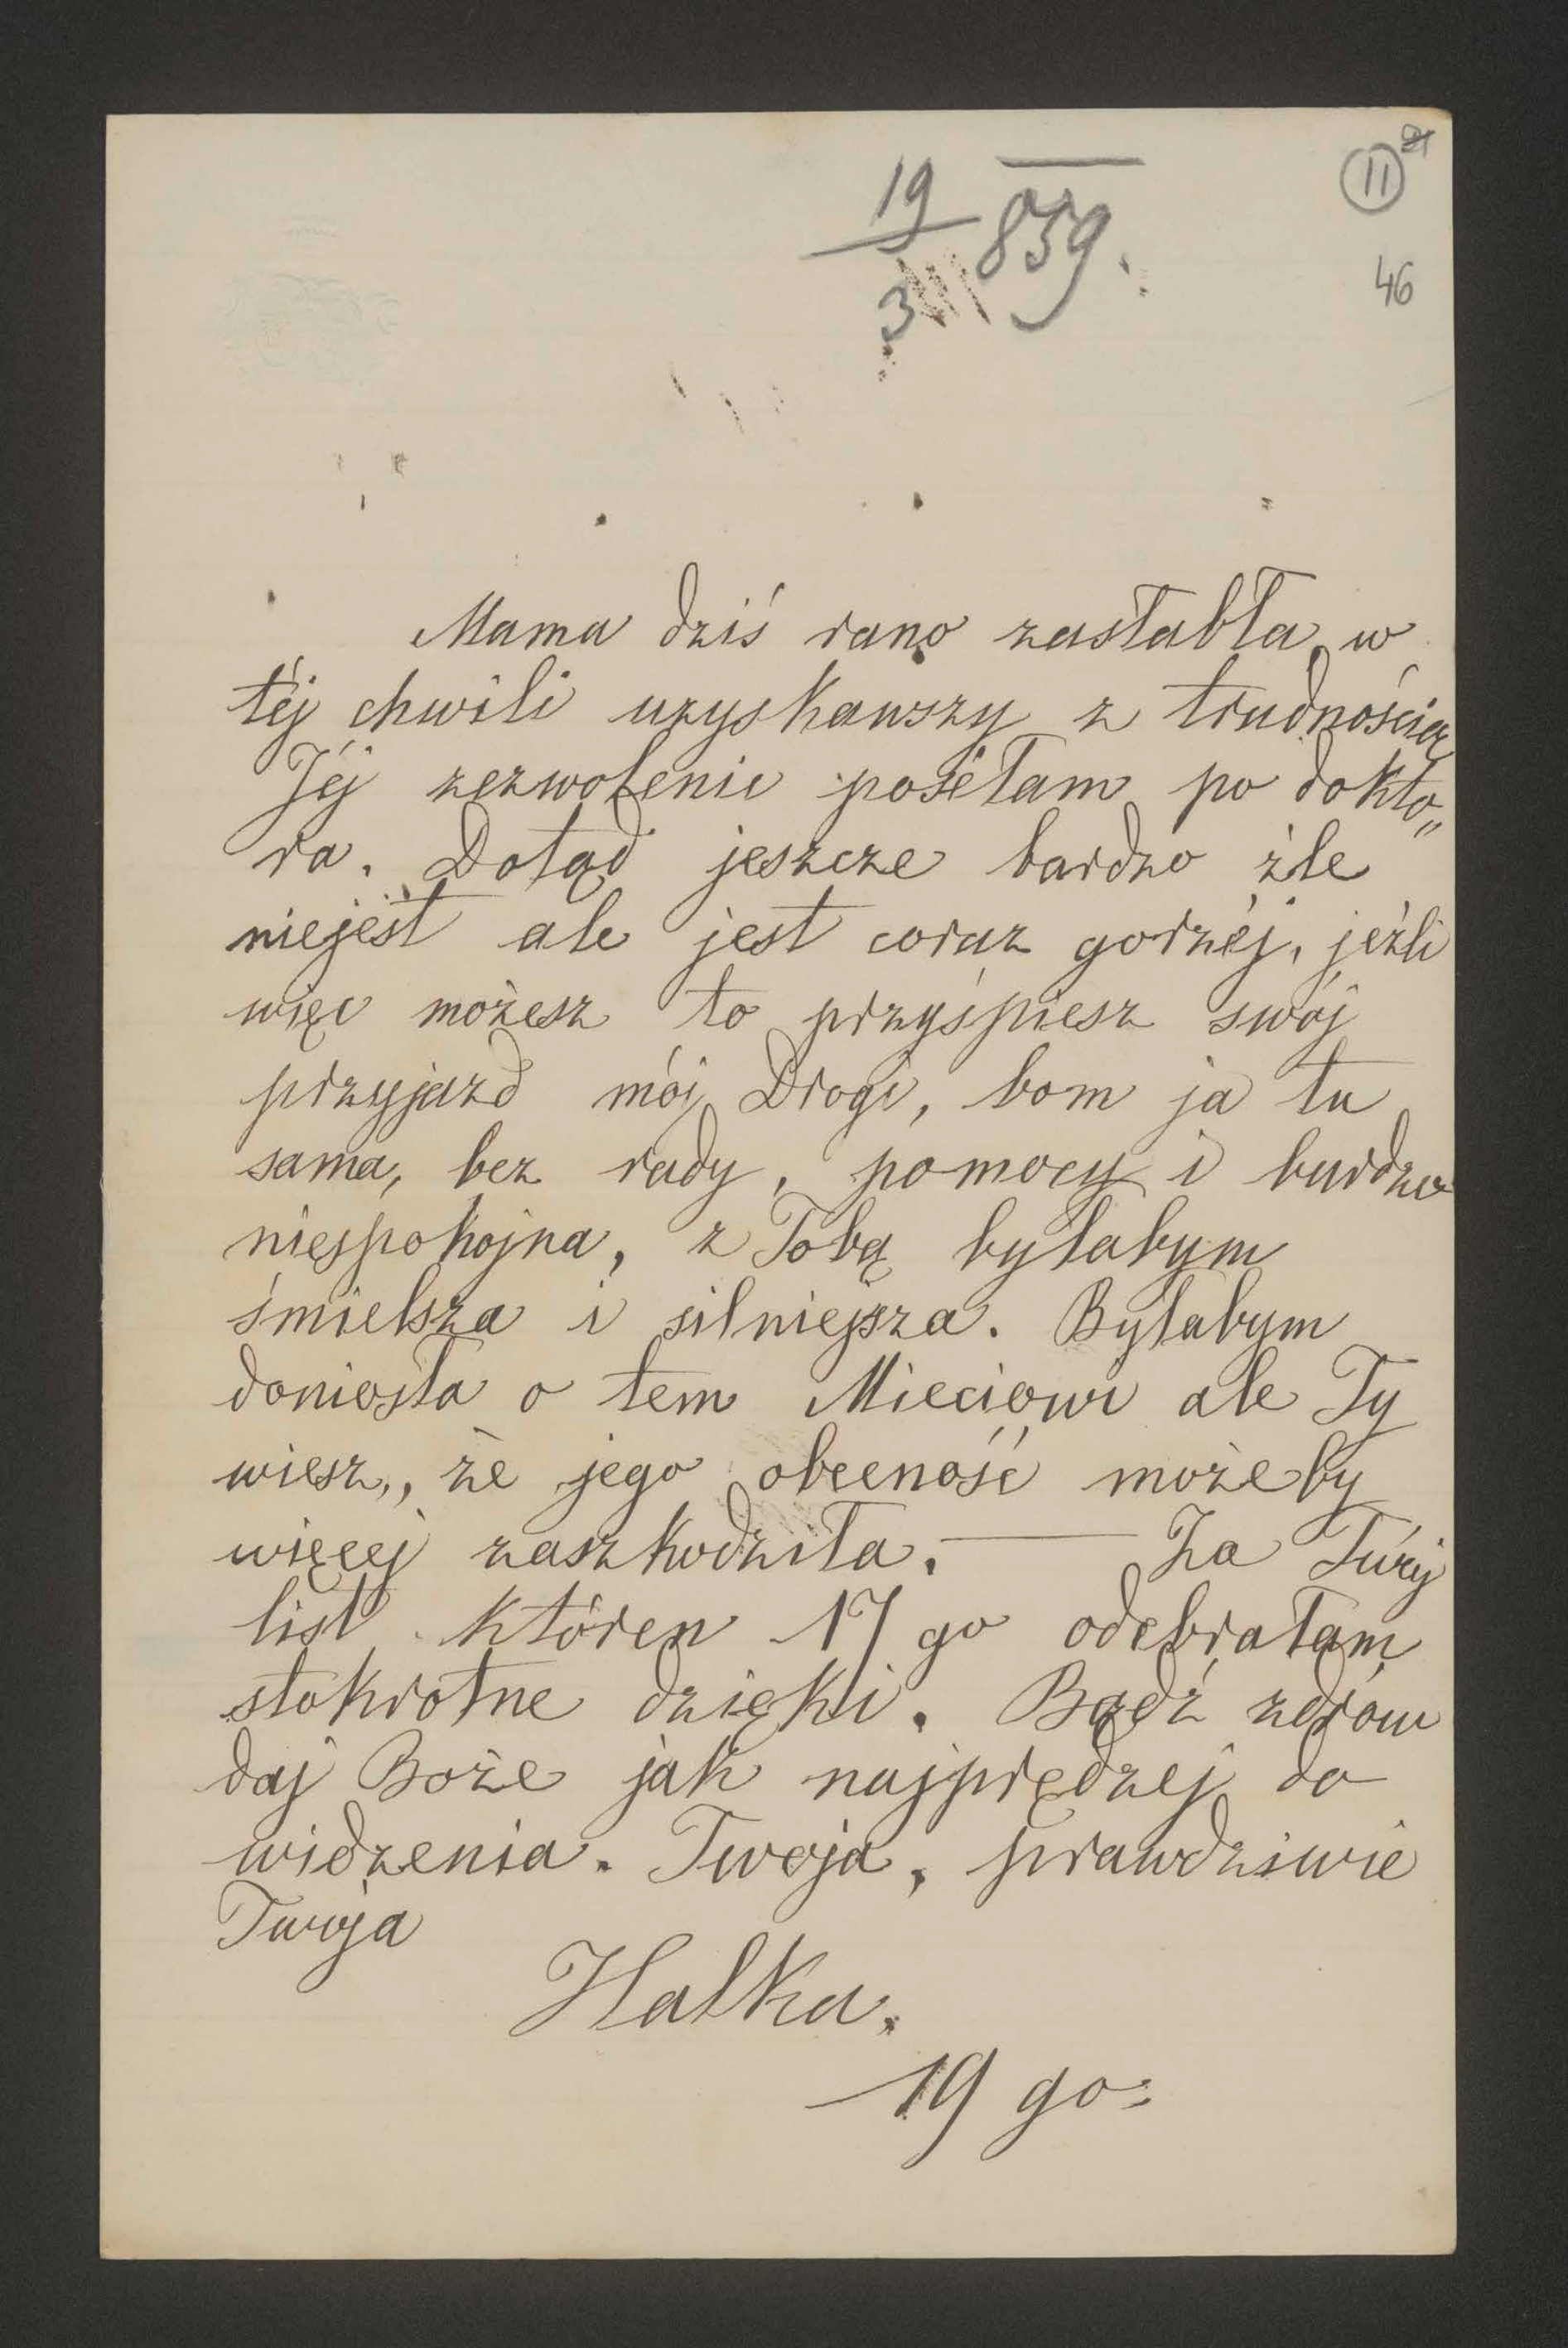 11
19/3 859.
46
Mama dziś rano zasłabła, w
téj chwili uzyskawszy z trudnością
Jéj zezwolenie posełam po dokto„
ra. Dotąd jeszcze bardzo źle
niejest ale jest coraz gorzéj, jeźli
więc możesz to przyśpiesz swój
przyjazd mój Drogi, bom ja tu
sama, bez rady, pomocy i bardzo
niespokojna, z Tobą byłabym
śmielsza i silniejsza. Byłabym
doniosła o tem Mieciowi ale Ty
wiesz,, że jego obecność możeby
więcej zaszkodziła. — Za Twój
list któren 17 go odebrałam
stokrotne dzięki. Bądź zdrów
daj Boże jak najprędzej do
widzenia. Twoja, prawdziwie
Twoja
Halka.
19 go: